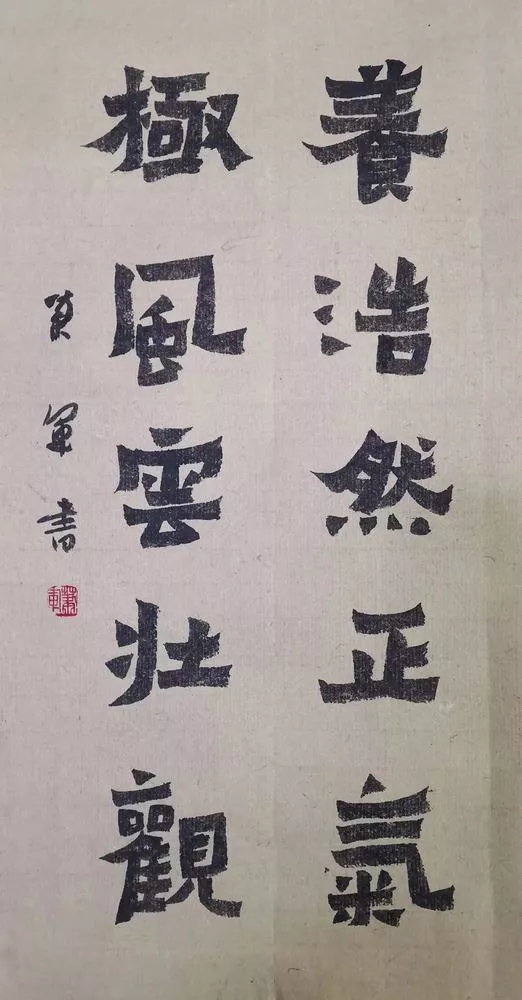 養浩然正氣
極風雲壯觀
軍書